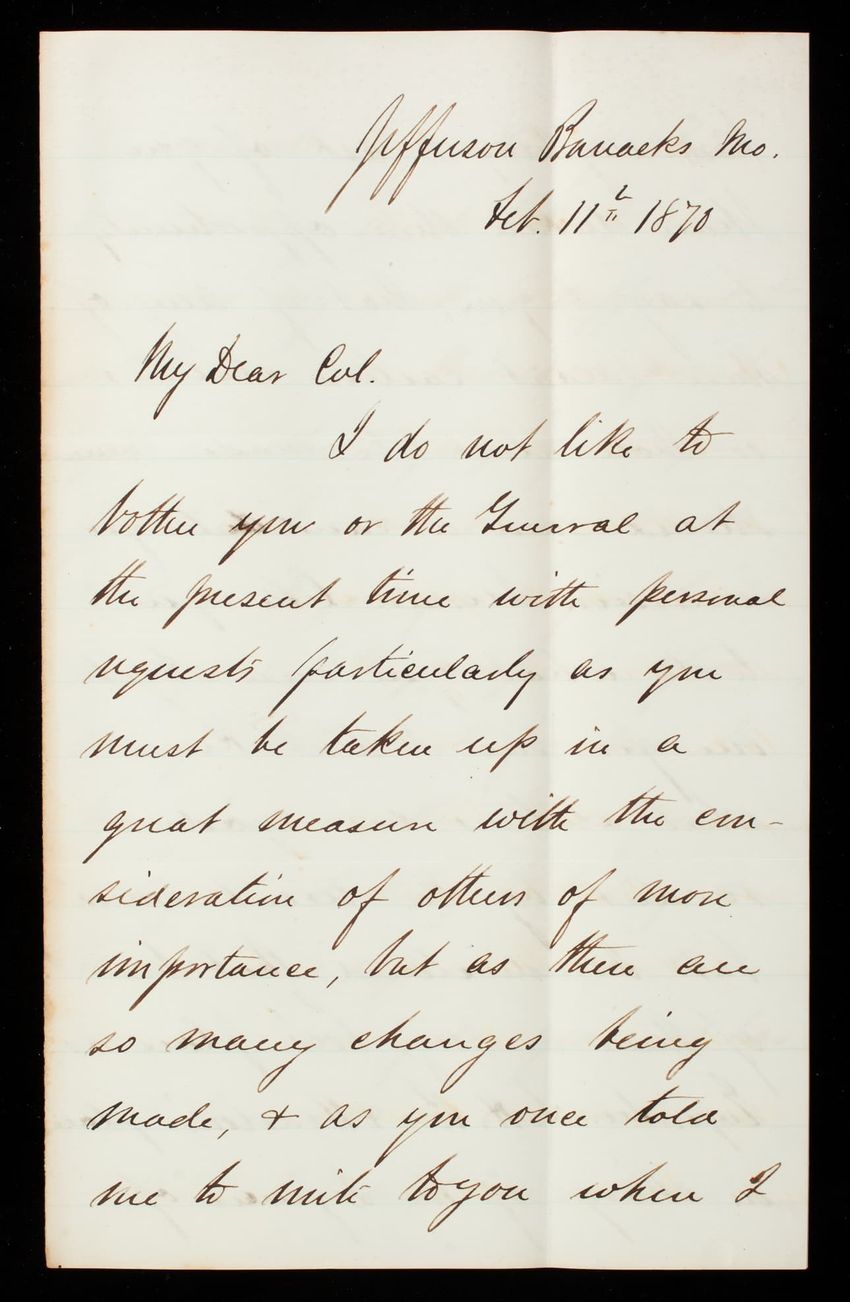 Jefferson Barracks Mo.
Feb. 11th 1870
My Dear Col.
I do not like to
bother you or the General at
the present time with personal
requests particularly as you
must be taken up in a
great measure with the con-
sideration of others of more
importance, but as there are
so many changes being
made, & as you once told
me to write to you when I